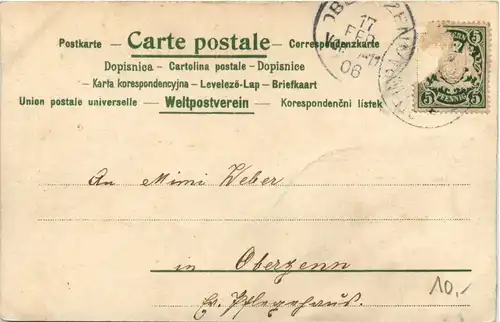 Postkarte — Carte postale — Correspondenzkarte
Dopisnica — Cartolina postale - Dopisnice
- Karta korespondencyjna - Levelező-Lap - Briefkaart
Union postale universelle — Weltpostverein — Korespondenční listek
17
FEB.
08
5 5
PFENNIG
An Mimi Weber
in Oberzenn
Ev. Pflegehaus.
10,-